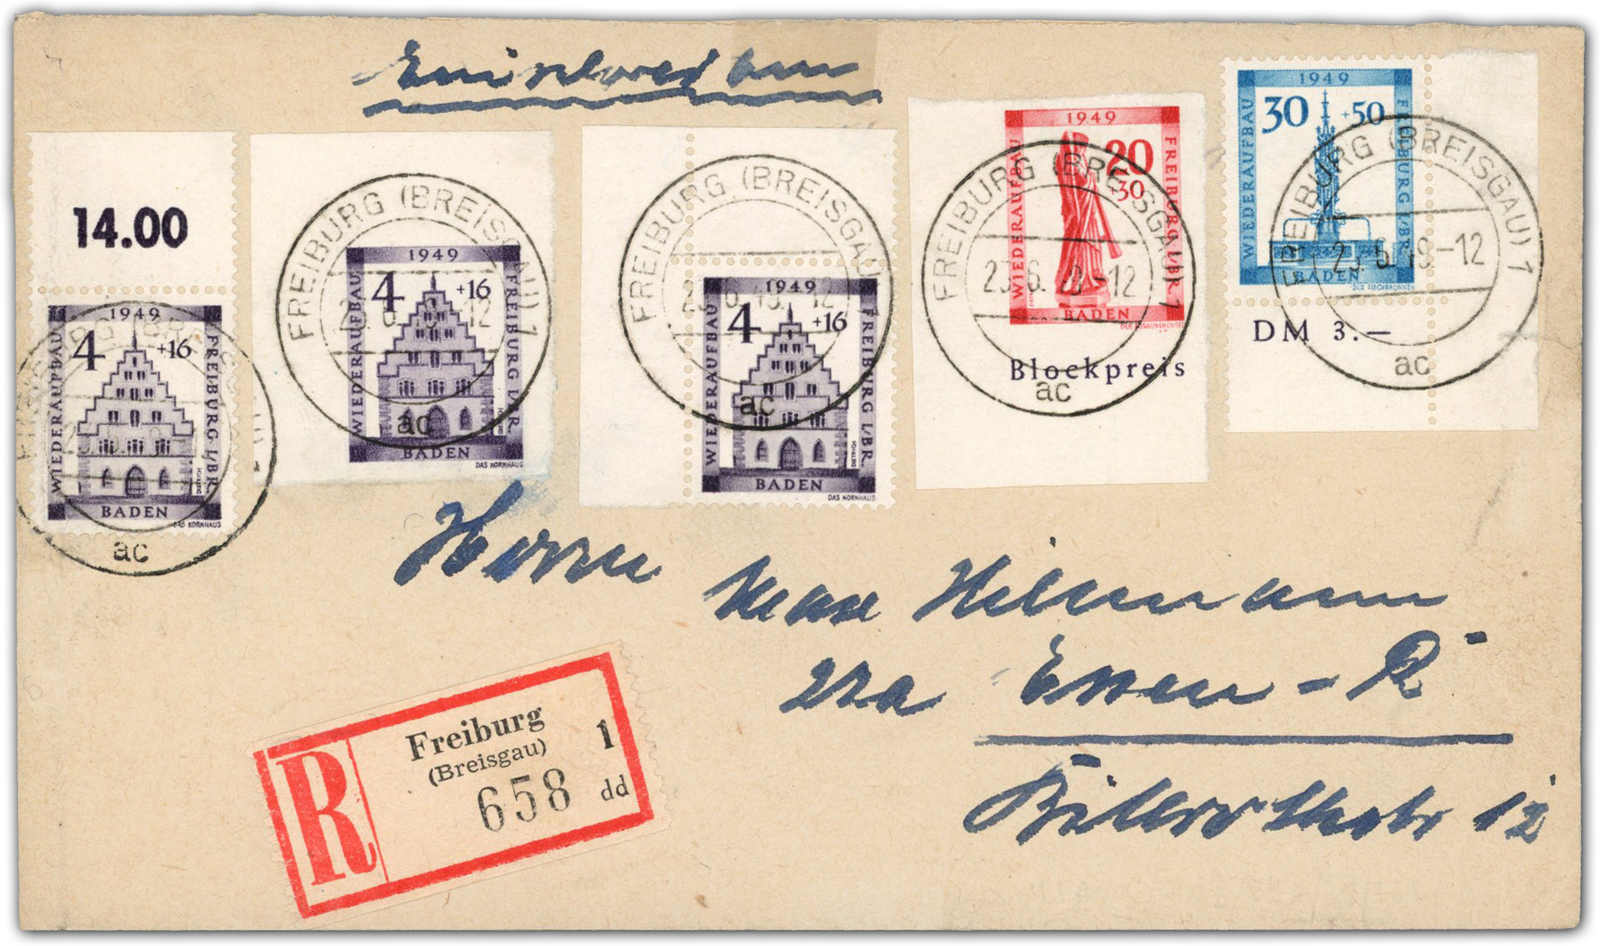 Einschreiben
14.00
1949
4 +16
WIEDERAUFBAU
FREIBURG I/BR.
BADEN
DAS KORNHAUS
DIETRICH
ac
1949
4 +16
WIEDERAUFBAU
FREIBURG I/BR.
BADEN
DAS KORNHAUS
FREIBURG (BREISGAU) 1
ac
1949
4 +16
WIEDERAUFBAU
FREIBURG I/BR.
BADEN
DAS KORNHAUS
DIETRICH
FREIBURG (BREISGAU
ac
1949
20
30
WIEDERAUFBAU
FREIBURG I/BR.
BADEN
Blockpreis
FREIBURG (BREISGAU) 1
ac
1949
30 +50
WIEDERAUFBAU
FREIBURG I/BR.
BADEN
DM 3.—
FREIBURG (BREISGAU) 1
ac
Herrn
Max Hilmann
22a Essen - R
12
R
Freiburg 1
(Breisgau)
658 dd